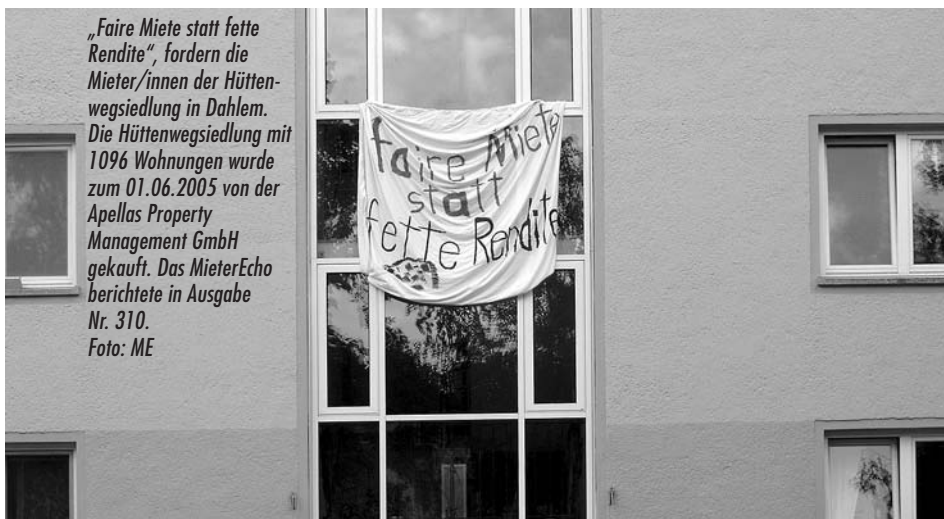 „Faire Miete statt fette
Rendite“, fordern die
Mieter/innen der Hütten-
wegsiedlung in Dahlem.
Die Hüttenwegsiedlung mit
1096 Wohnungen wurde
zum 01.06.2005 von der
Apellas Property
Management GmbH
gekauft. Das MieterEcho
berichtete in Ausgabe
Nr. 310.
Foto: ME
faire Miete
statt
fette Rendite